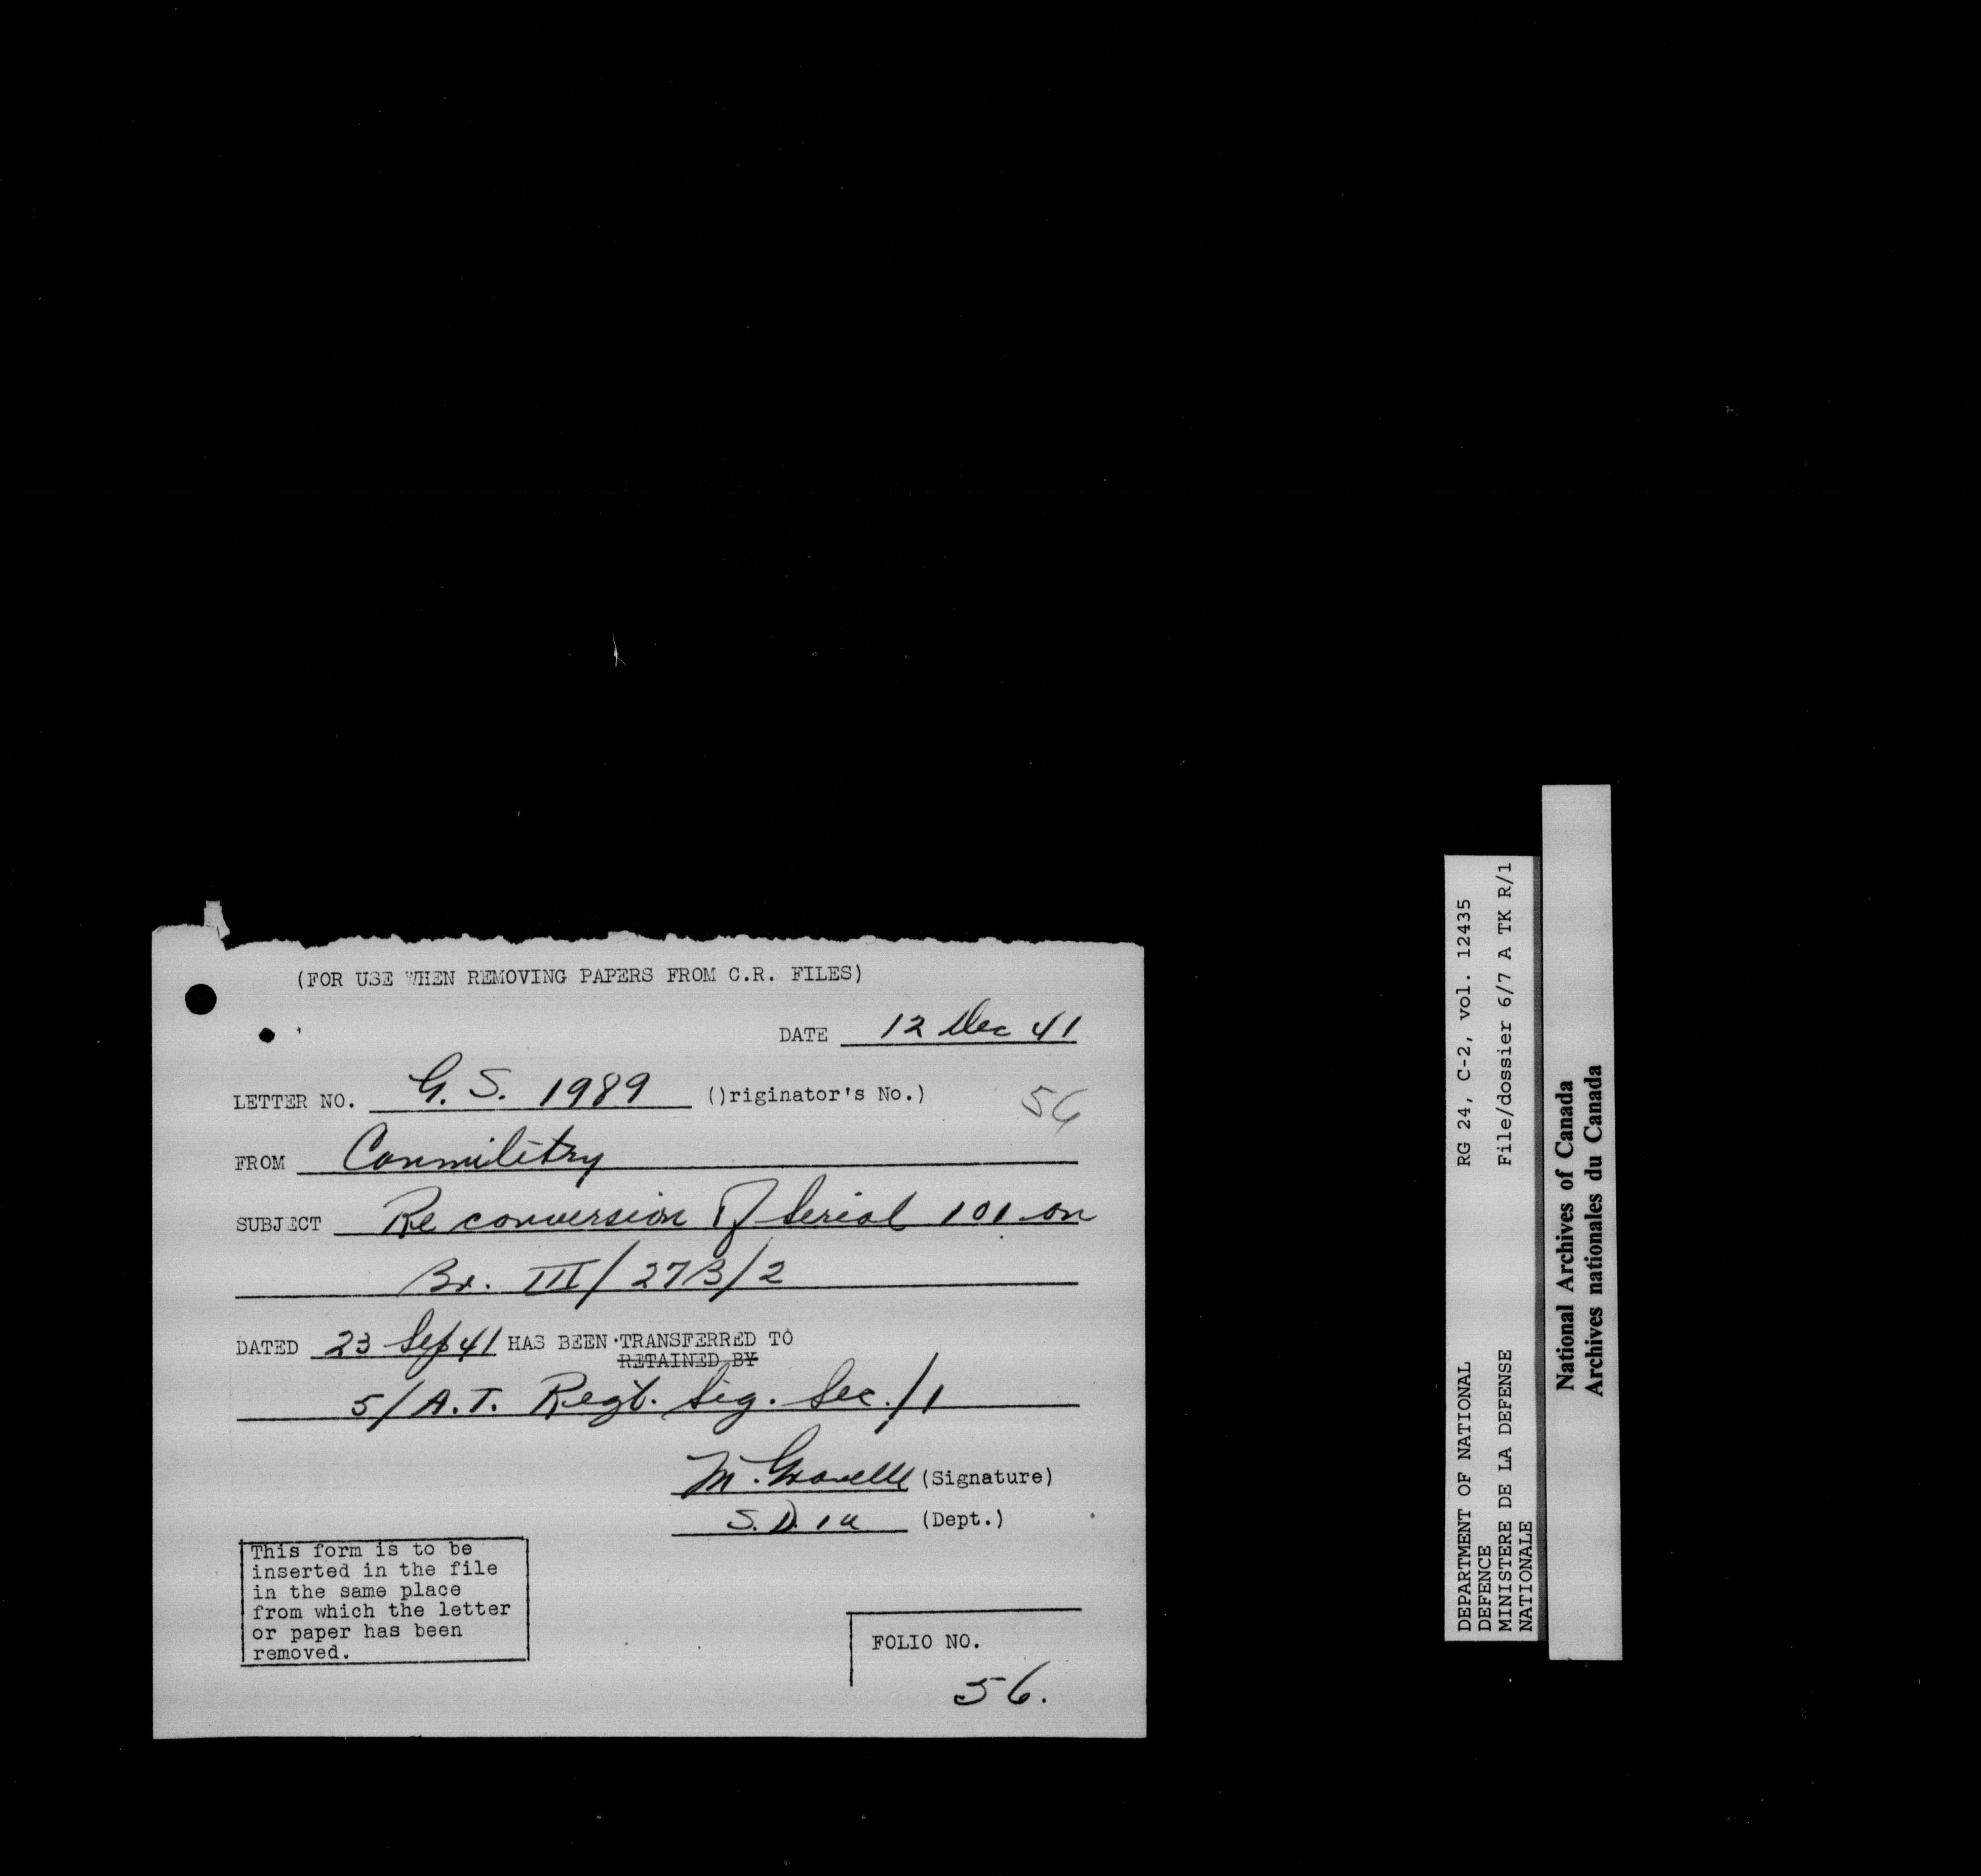 (FOR USE WHEN REMOVING PAPERS FROM C.R. FILES)
DATE 12 Dec 41
LETTER NO. G. S. 1989 ()riginator's No.)
56
FROM Canmilitry
SUBJECT Re conversion of Serial 101 on
Br. III/27B/2
DATED 23 Sep 41 HAS BEEN TRANSFERRED TO
RETAINED BY
5/A.T. Regt. Sig. Sec./1
M. Gravelle (Signature)
S. D. 1a (Dept.)
This form is to be
inserted in the file
in the same place
from which the letter
or paper has been
removed.
FOLIO NO.
56.
DEPARTMENT OF NATIONAL
DEFENCE
MINISTERE DE LA DEFENSE
NATIONALE
RG 24, C-2, vol. 12435
File/dossier 6/7 A TK R/1
National Archives of Canada
Archives nationales du Canada